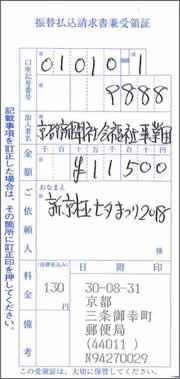 振替払込請求書兼受領証
口座記号番号
01010=1
9888
加入者名
京都新聞社会福祉事業団
金額
千 百 十 万 千 百 十 円
¥11500
ご依頼人
おなまえ
新京極七夕まつり2018
様
料金
(消費税込み)
130
円
備考
日附印
30-08-31
京都
三条御幸町
郵便局
(44011 )
N94270029
記載事項を訂正した場合は、その箇所に訂正印を押してください。
この受領証は、大切に保管してください。